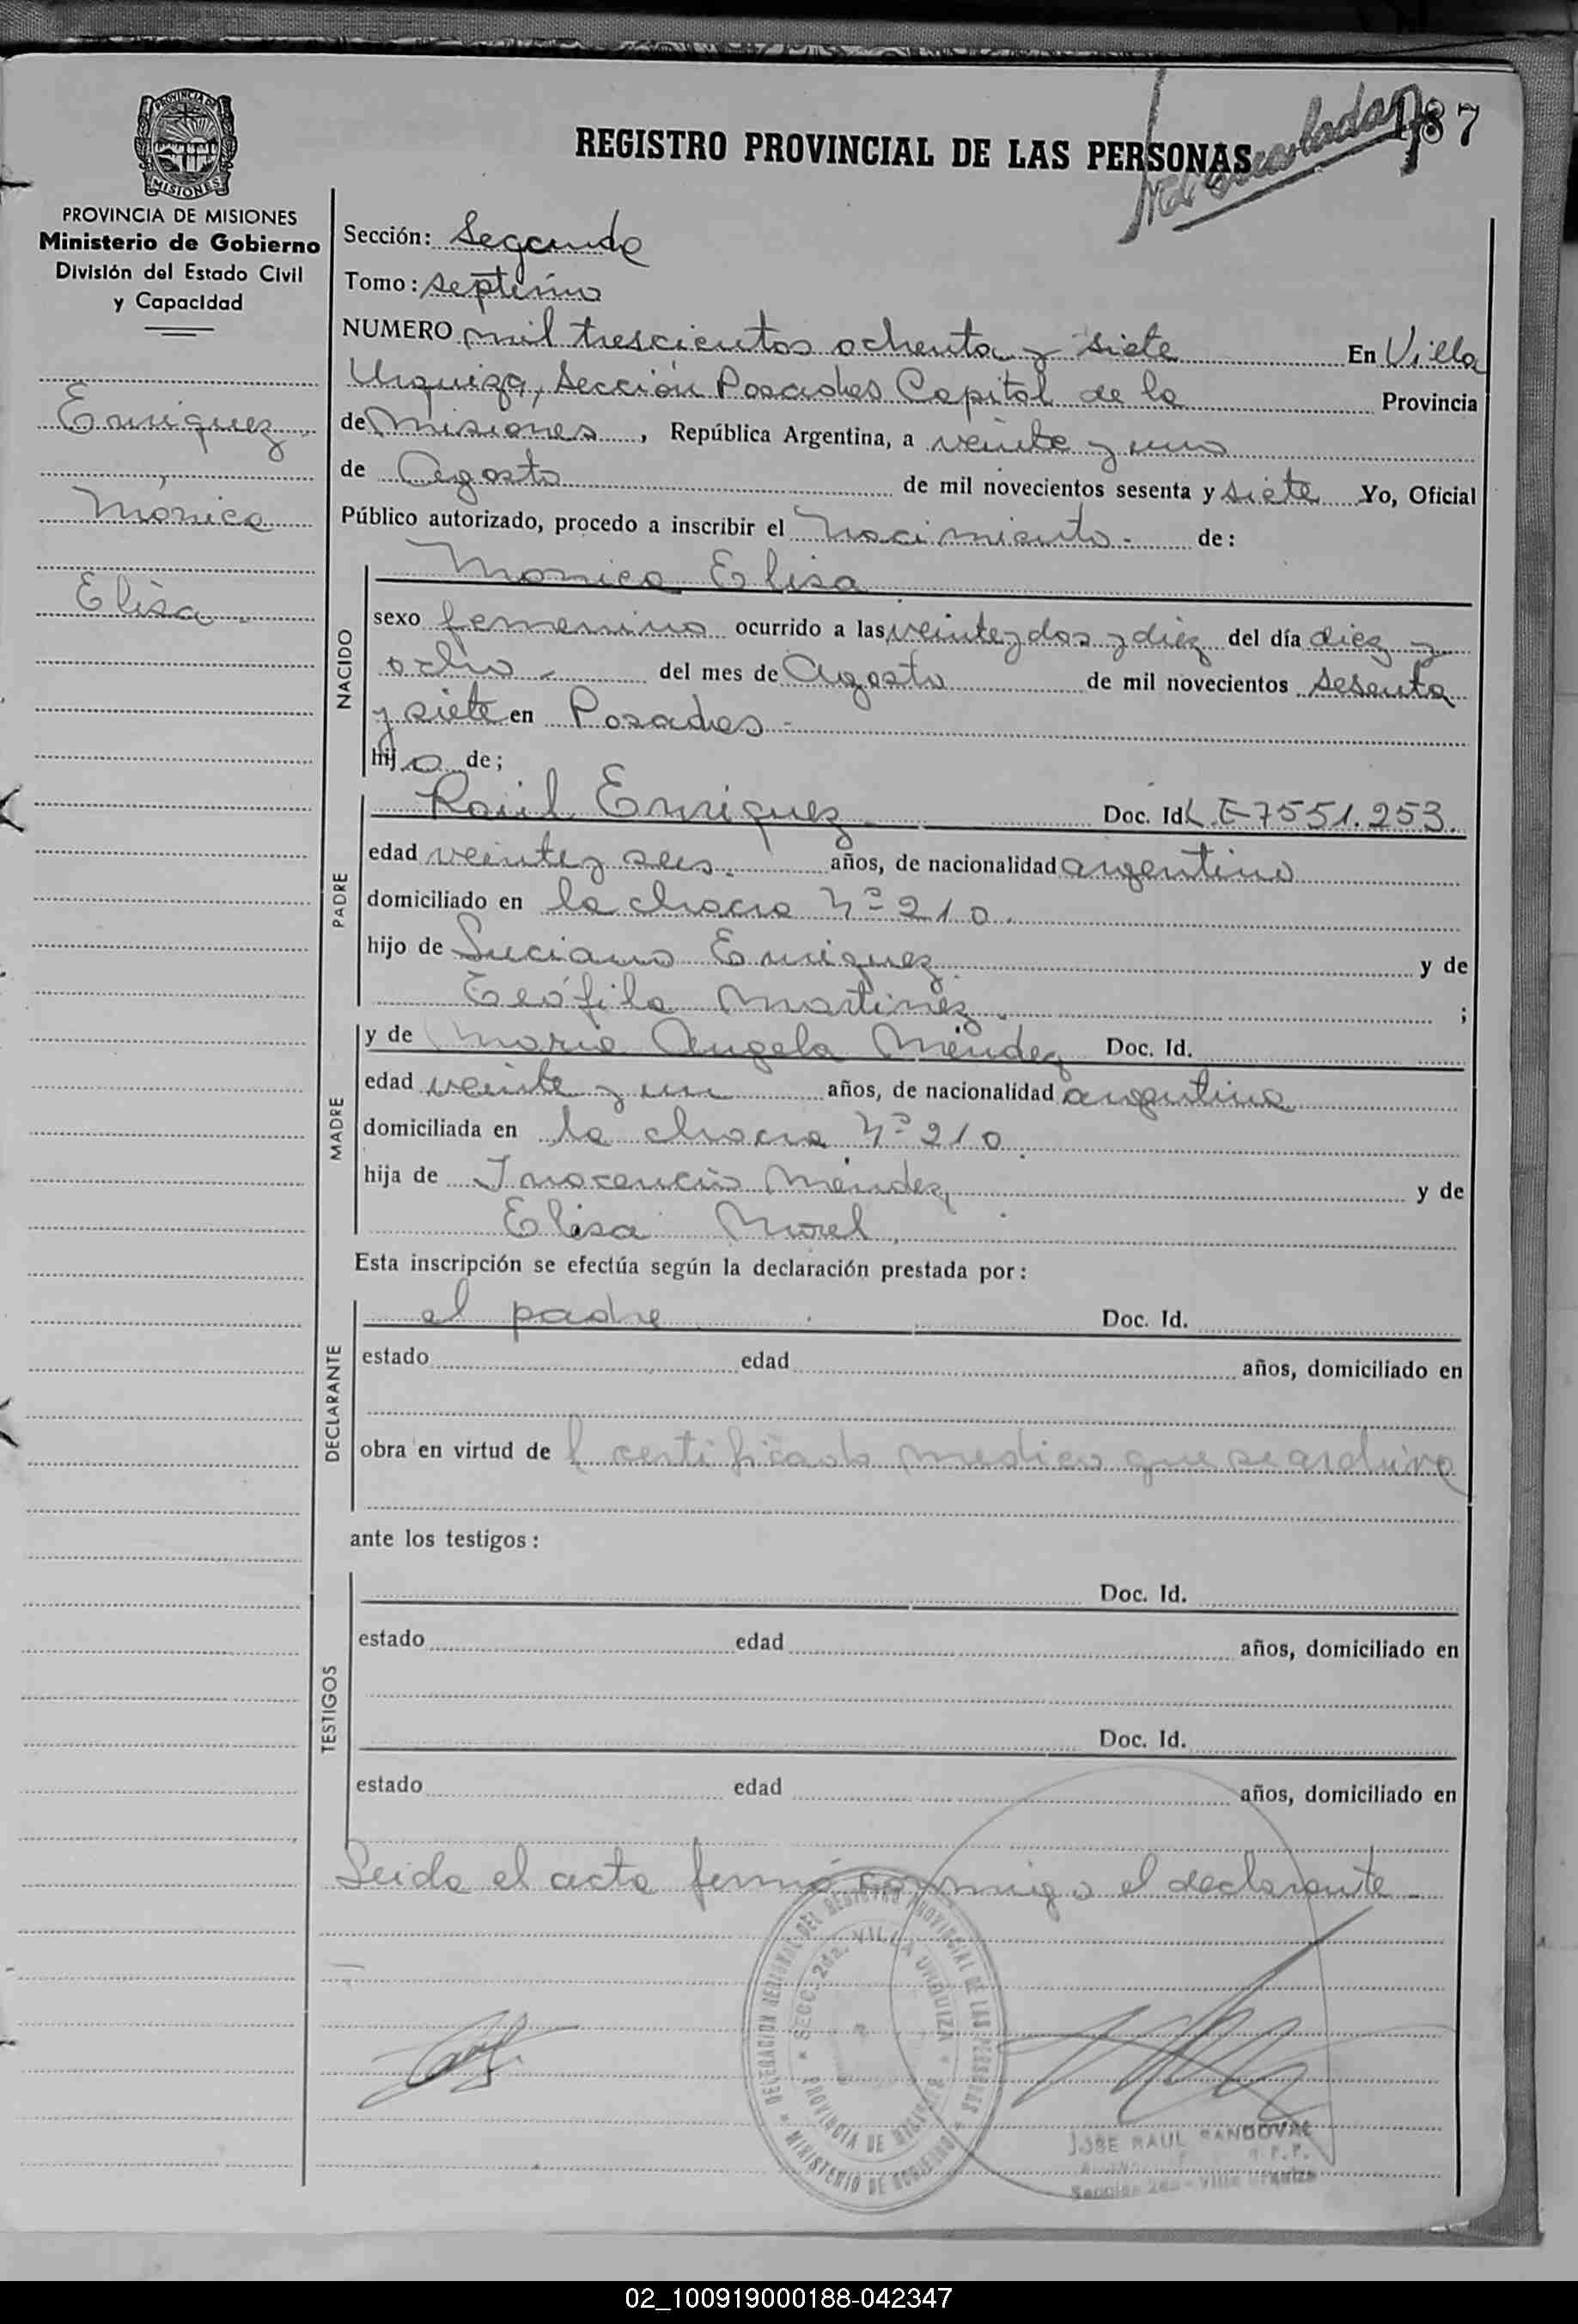 187
REGISTRO PROVINCIAL DE LAS PERSONAS
PROVINCIA DE MISIONES
PROVINCIA DE MISIONES
Ministerio de Gobierno
División del Estado Civil
y Capacidad
Enriquez
Mónica
Elisa
Sección: Segunda
Tomo: septimo
NUMERO mil trescientos ochenta y siete En Villa
Urquiza, Sección Posadas Capital de la Provincia
de Misiones, República Argentina, a veinte y uno
de Agosto de mil novecientos sesenta y siete Yo, Oficial
Público autorizado, procedo a inscribir el Nacimiento.- de:
NACIDO
Monica Elisa
sexo femenino ocurrido a las veinte y dos y diez del día diez y
ocho - del mes de Agosto de mil novecientos sesenta
y siete en Posadas -
hija de;
PADRE
Raúl Enriquez Doc. Id L.E 7551.253.
edad veinte y seis. años, de nacionalidad argentino
domiciliado en la chacra Nº 210.
hijo de Luciano Enriquez y de
Teófila Martinez. ;
MADRE
y de Maria Angela Méndez Doc. Id.
edad veinte y un años, de nacionalidad argentina
domiciliada en la chacra Nº 210
hija de Inocencio Méndez y de
Elisa Morel,
Esta inscripción se efectúa según la declaración prestada por:
DECLARANTE
el padre Doc. Id.
estado edad años, domiciliado en
obra en virtud de l certificado medico que se archiva
ante los testigos:
TESTIGOS
Doc. Id.
estado edad años, domiciliado en
Doc. Id.
estado edad años, domiciliado en
Leida el acta firmó conmigo el declarante -
DELEGACION REGIONAL DEL REGISTRO PROVINCIAL DE LAS PERSONAS
SECC. 2da. VILLA URQUIZA
PROVINCIA DE MISIONES
MINISTERIO DE GOBIERNO
JOSE RAUL SANDOVAL
Sección 2da - Villa Urquiza
02_100919000188-042347